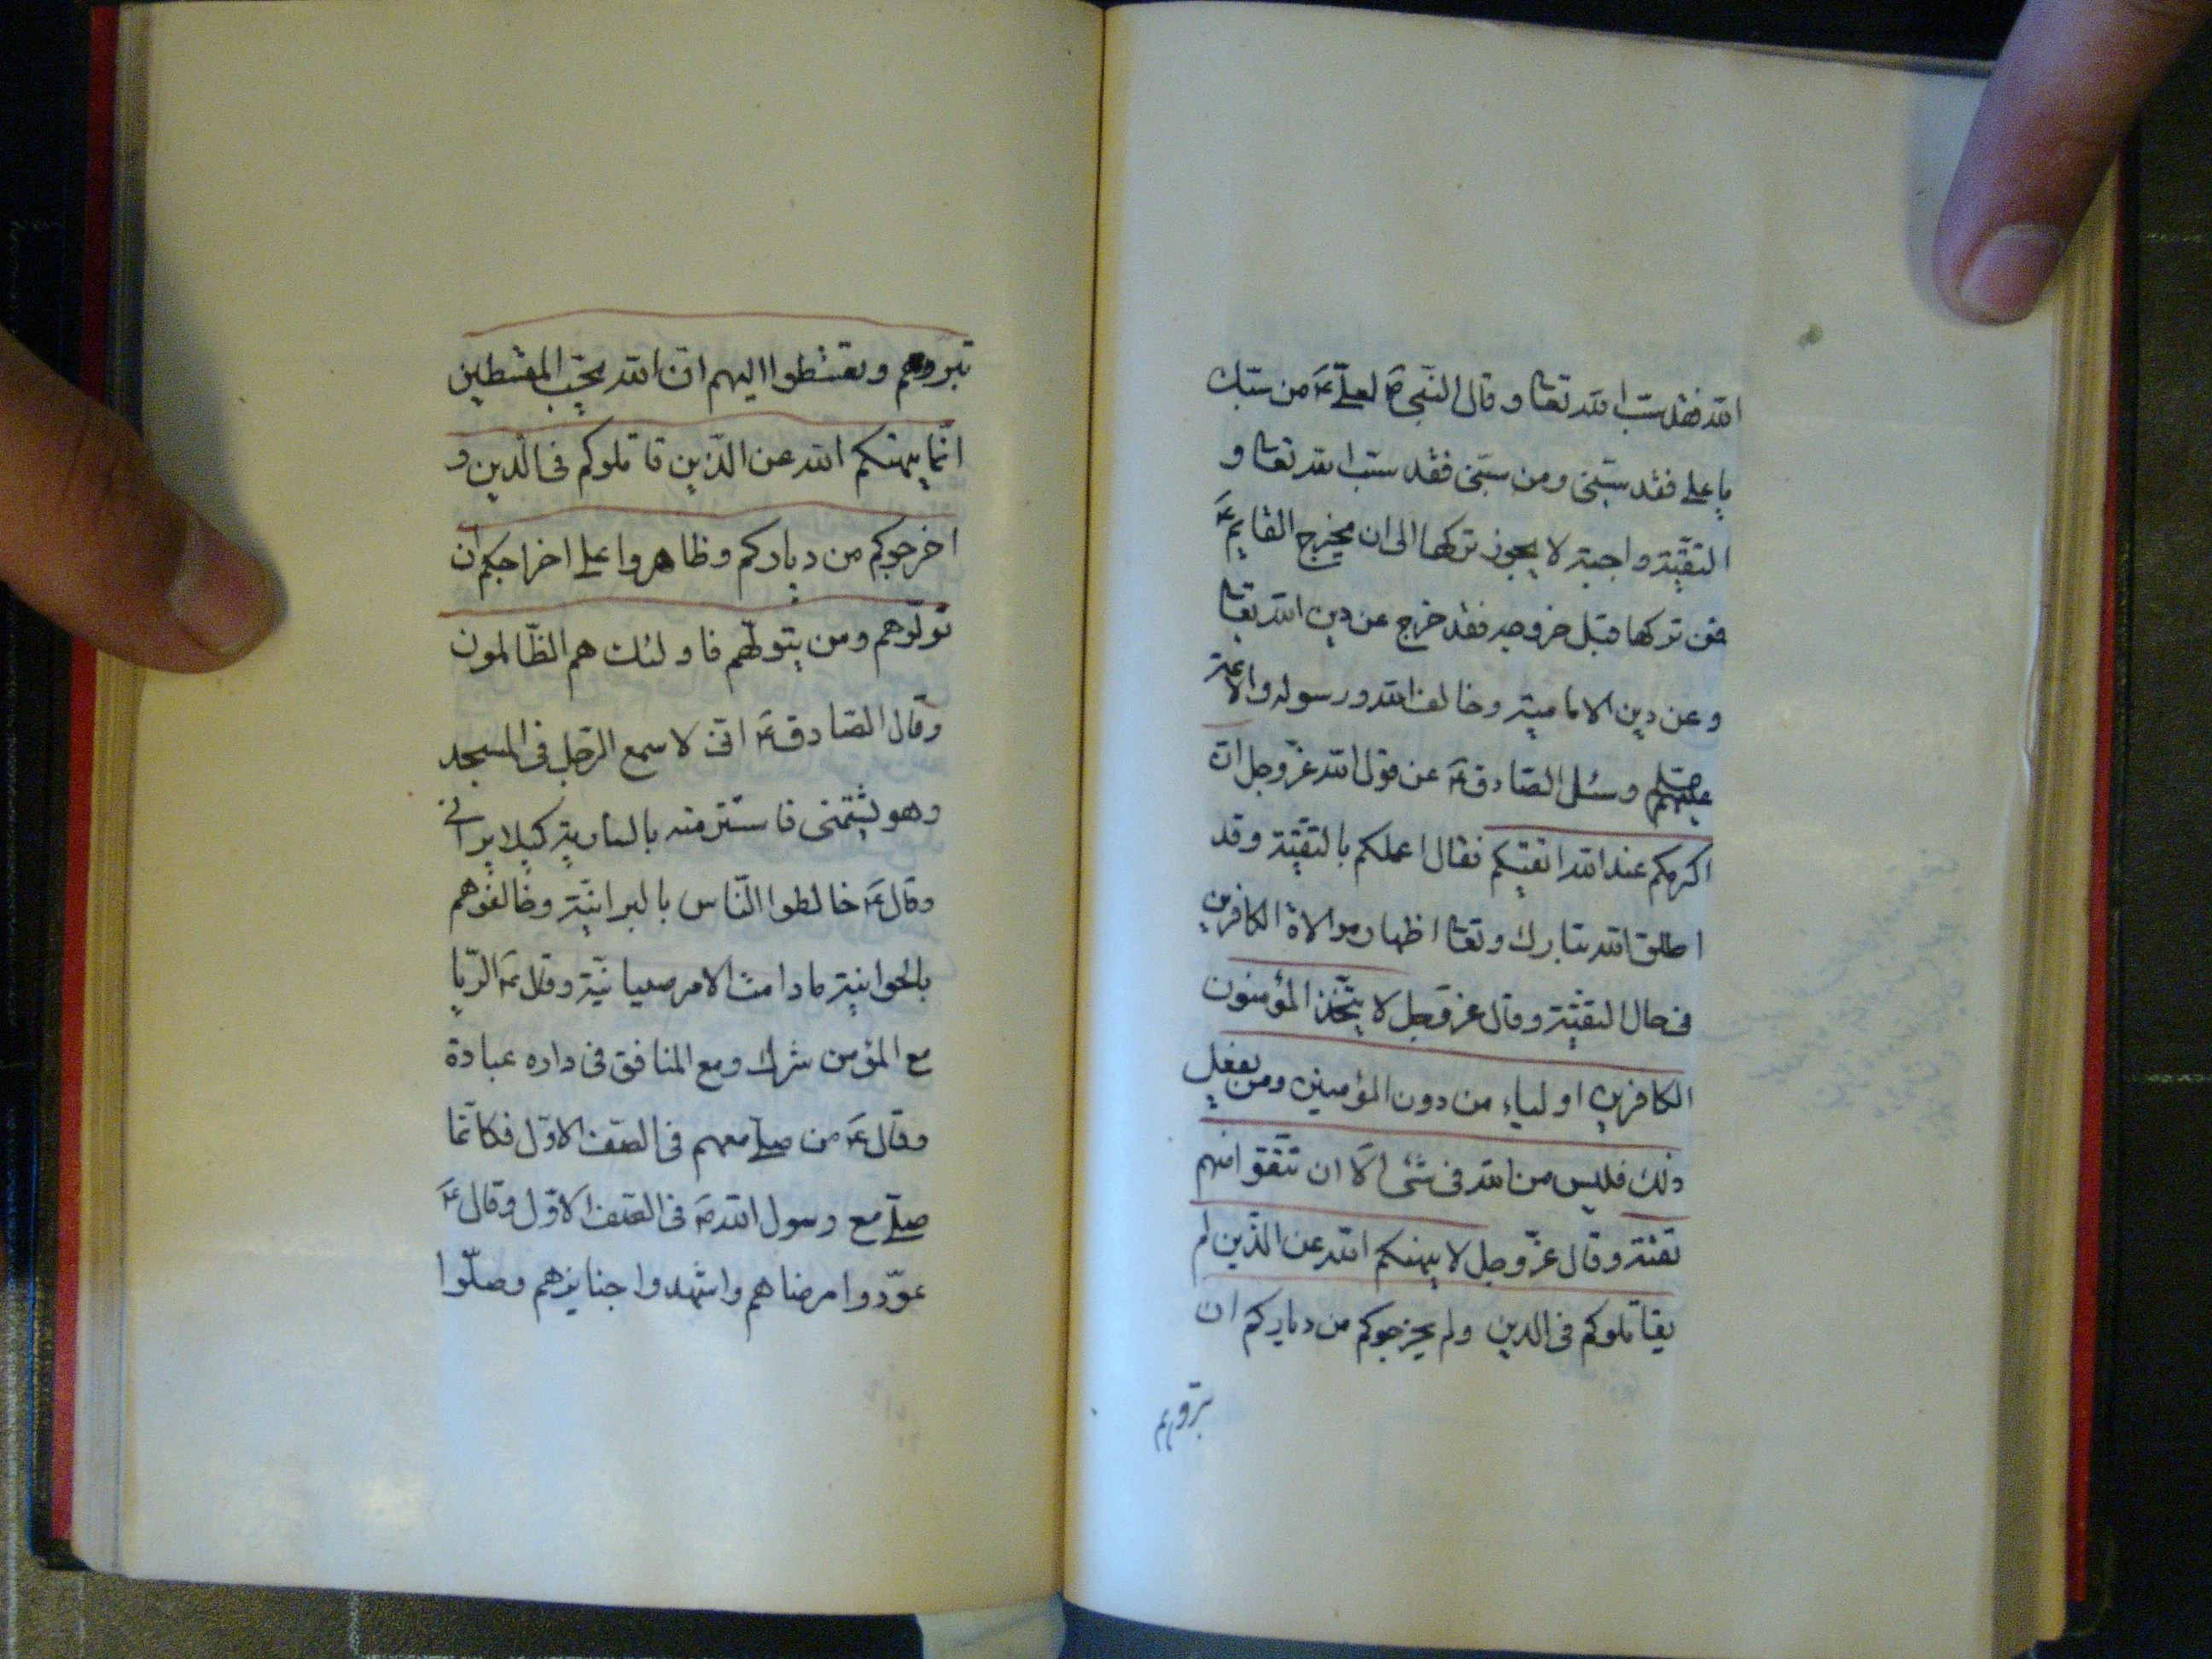 الله فقد سب الله تعا وقال النبى ص لعلى ع من سبك
يا على فقد سبنى ومن سبنى فقد سب الله تعا و
التقية واجبة لا يجوز تركها الى ان يخرج القايم ع
فمن تركها قبل خروجه فقد خرج عن دين الله تعا
وعن دين الامامية وخالف الله ورسوله والائمة
وسئل الصادق ع عن قول الله عز وجل ان
اكرمكم عند الله اتقيكم فقال اعملكم بالتقية وقد
اطلق الله تبارك وتعا اظهار موالاة الكافرين
فى حال التقية وقال عز وجل لا يتخذ المؤمنون
الكافرين اولياء من دون المؤمنين ومن يفعل
ذلك فليس من الله فى شئ الا ان تتقوا منهم
تقية وقال عز وجل لا ينهيكم الله عن الذين لم
يقاتلوكم فى الدين ولم يخرجوكم من دياركم ان
تبروهم
تبروهم وتقسطوا اليهم ان الله يحب المقسطين
انما ينهيكم الله عن الذين قاتلوكم فى الدين و
اخرجوكم من دياركم وظاهروا على اخراجكم ان
تولوهم ومن يتولهم فاولئك هم الظالمون
وقال الصادق ع انى لاسمع الرجل فى المسجد
وهو يشتمنى فاستتر منه بالسارية كيلا يرانى
وقال ع خالطوا الناس بالبرانية وخالفوهم
بالجوانية مادامت الامر صبيانية وقال ع الريا
مع المؤمن شرك ومع المنافق فى داره عبادة
وقال ع من صلى معهم فى الصف الاول فكانما
صلى مع رسول الله ص فى الصف الاول وقال ع
عودوا مرضاهم واشهدوا جنايزهم وصلوا